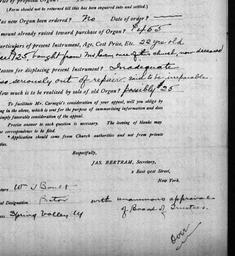 (Form should not be returned till this has been inquired into and settled.)
as new Organ been ordered? No Date of order?
amount already raised toward purchase of Organ? $ 655
articulars of present Instrument, Age, Cost Price, Etc. 22 years old
$125, bought from one of this church, now deceased
eason for displacing present Instrument? Inadequate
seriously out of repair, said to be irreparable
ow much is to be realized by sale of old Organ? possibly $25
To facilitate Mr. Carnegie's consideration of your appeal, will you oblige by
ng in the above, which is sent for the purpose of summarizing information and thus
simply favorable consideration of the appeal.
Precise answer to each question is necessary. The leaving of blanks may
re correspondence to be filed.
Application should come from Church authorities and not from private
viduals.
Respectfully,
JAS. BERTRAM, Secretary,
2 East 91st Street,
New York.
ature Wm J
ial Designation. Pastor with unanimous approval
ess. Spring Valley, of Board of Trustees.
Over